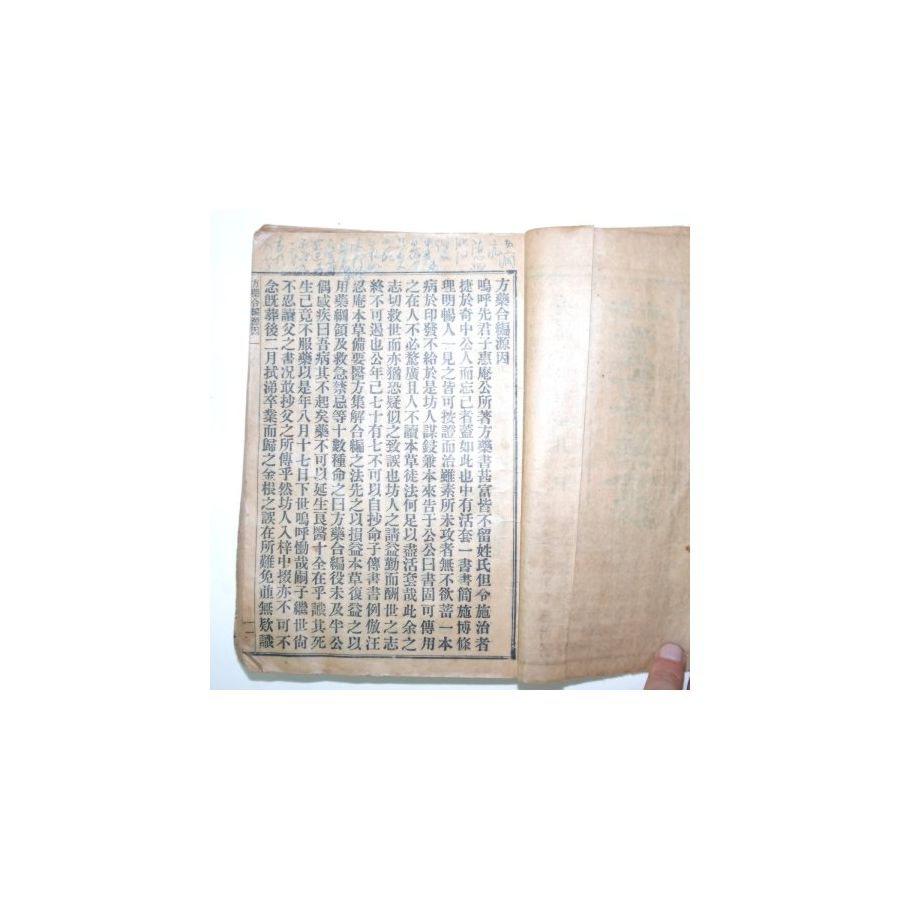 方藥合編源因
嗚呼先君子惠庵公所著方藥書甚富皆不留姓氏但令施治者
捷於奇中公人而忘己者蓋如此也中有活套一書書簡施博條
理明暢人一見之皆可按證而治雖素所未攻者無不欲蓄一本
病於印發不給於是坊人謀鋟兼本來告于公公曰書固可傳用
之在人不必騖廣且人不讀本草徒法何足以盡活套哉此余之
志切救世而亦猶恐疑似之致誤也坊人之請益勤而酬世之志
終不可遏也公年已七十有七不可以自抄命子傳書書例倣汪
忍庵本草備要醫方集解合編之法先之以損益本草復益之以
用藥綱領及救急禁忌等十數種命之曰方藥合編役未及半公
偶感疾曰吾病其不起矣藥不可以延生良醫十全在乎識其死
生已竟不服藥以是年八月十七日下世嗚呼慟哉嗣子繼世尙
不忍讀父之書况敢抄父之所傳乎然坊人入梓中掇亦不可不
念旣葬後二月拭涕卒業而歸之金根之誤在所難免並無欵識
方藥合編源因